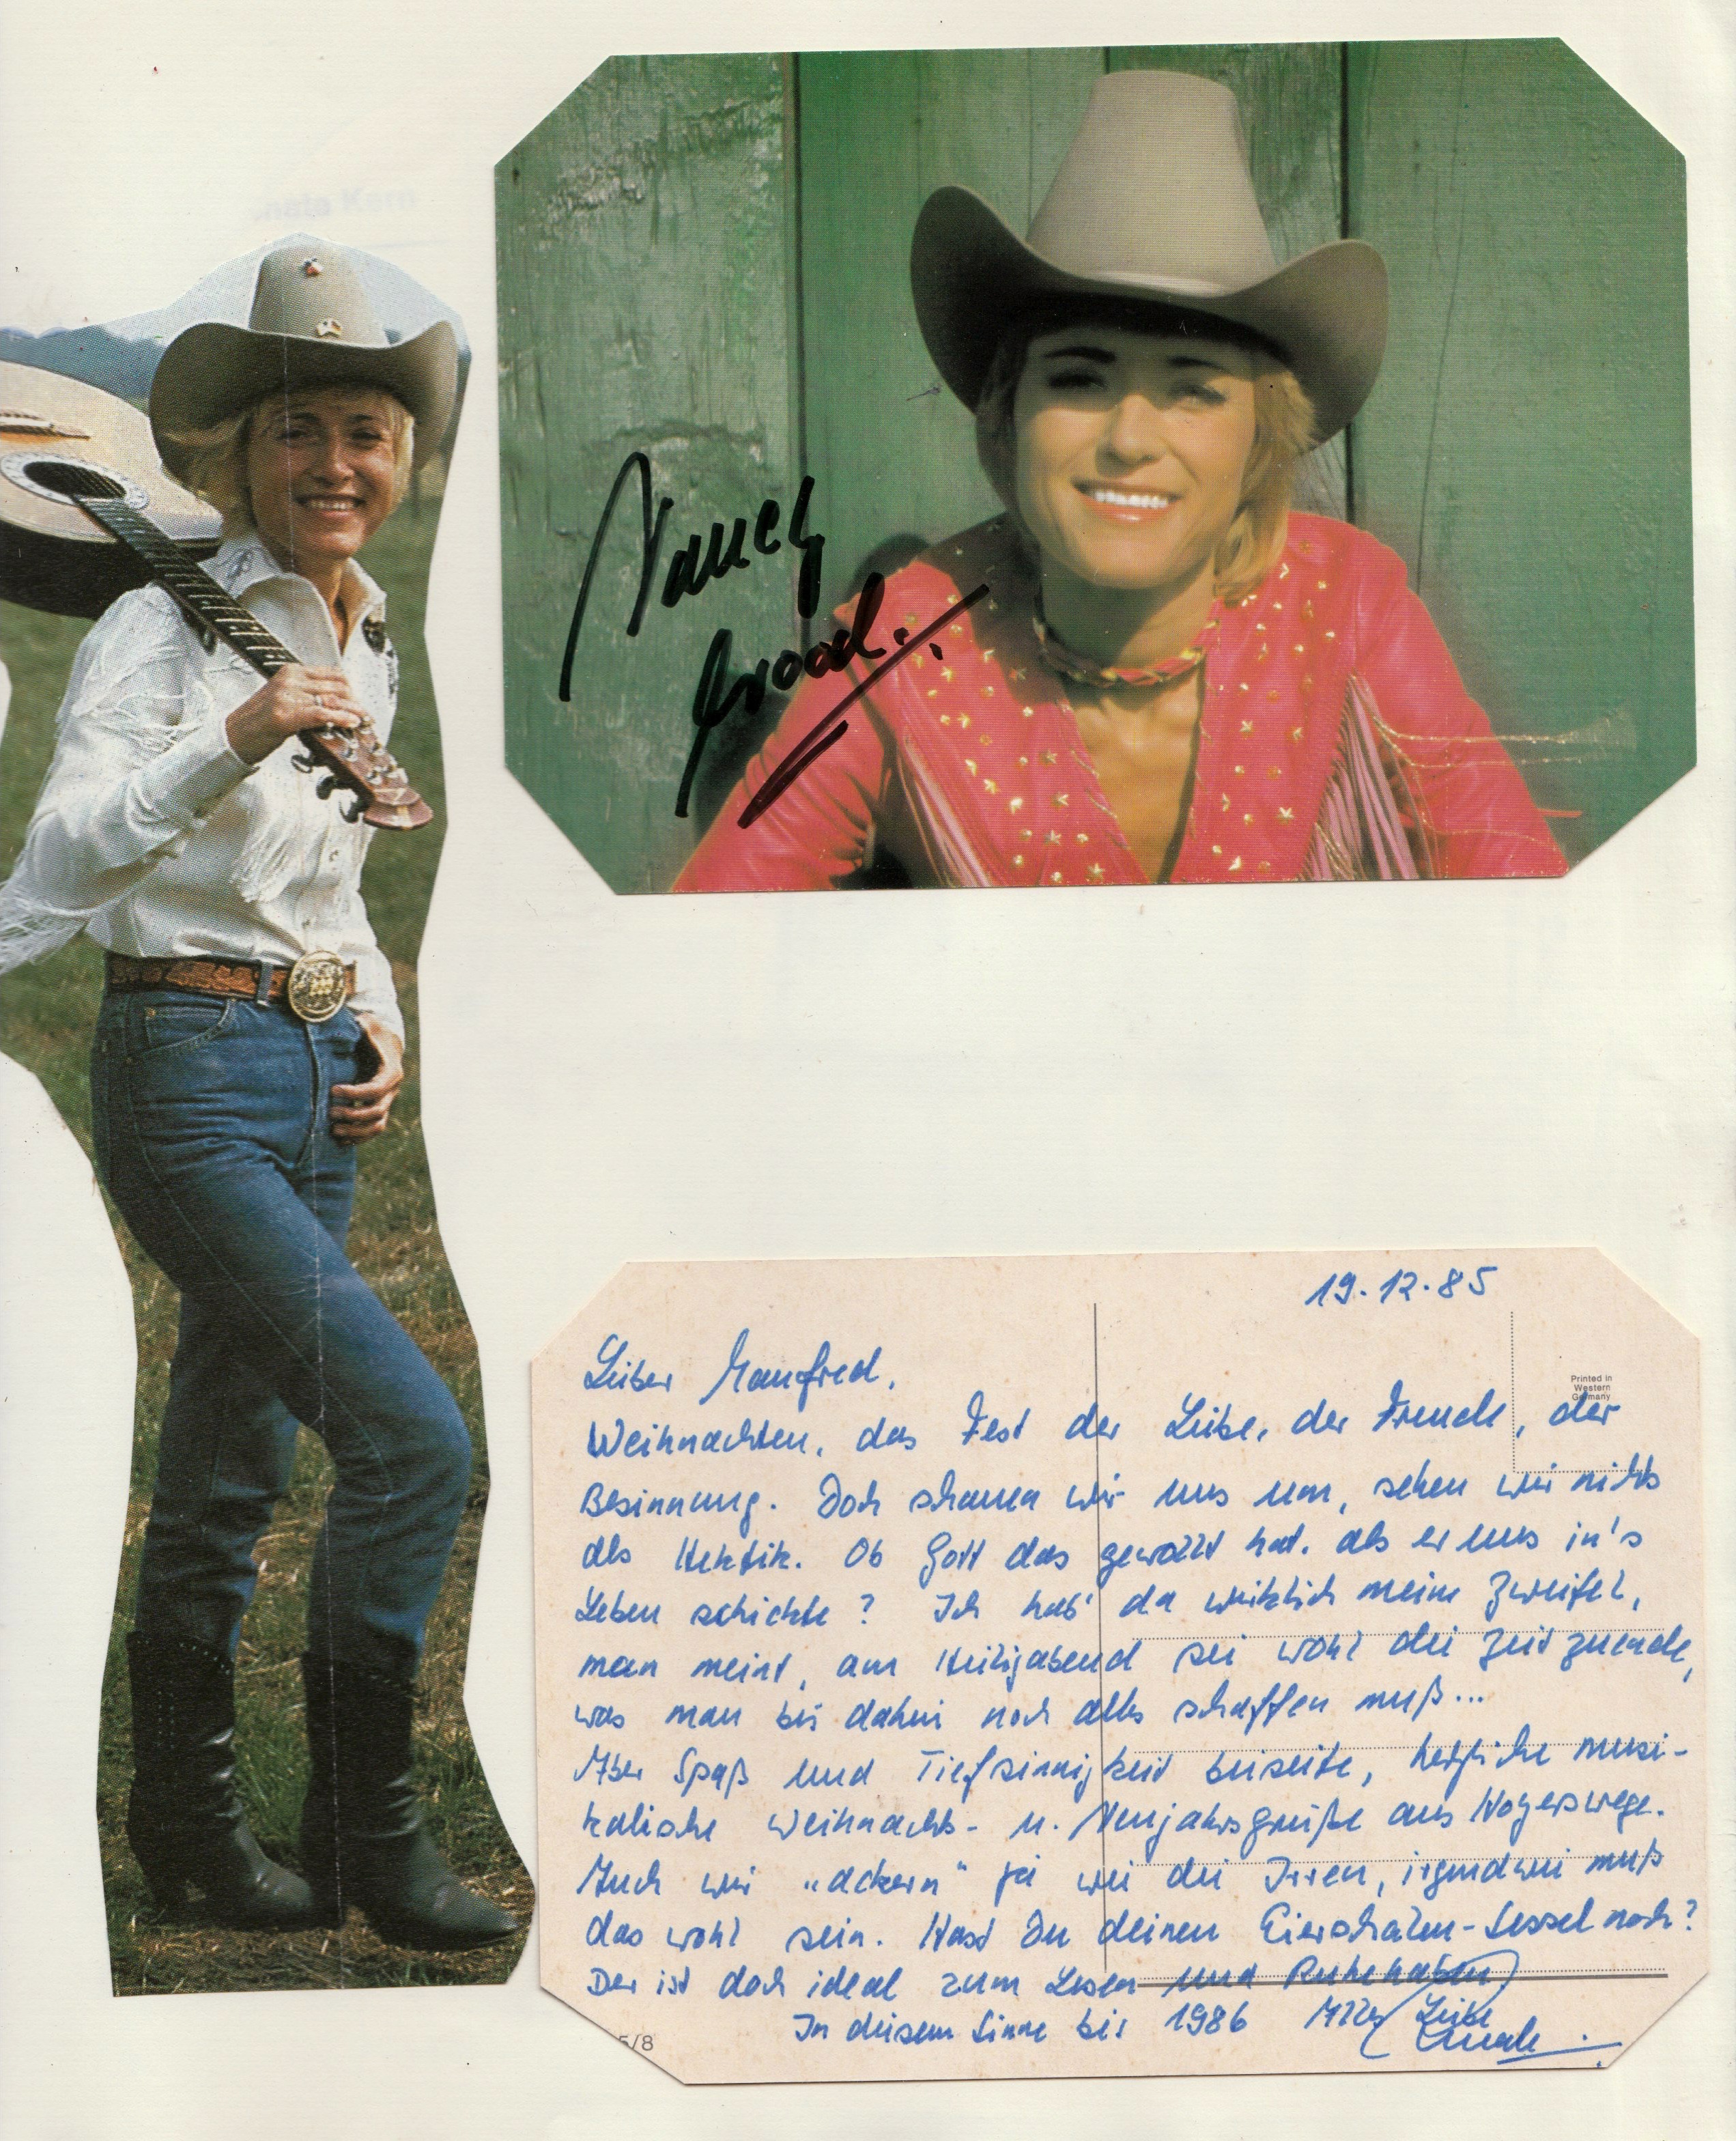 nata Kern
Nancy
Wood
19.12.85
Printed in
Western
Germany
Lieber Manfred,
Weihnachten, das Fest der Liebe, der Freude, der
Besinnung. Doch schauen wir uns um, sehen wir nichts
als Hektik. Ob Gott das gewollt hat, als er uns in's
Leben schickte? Ich hab' da wirklich meine Zweifel,
man meint, am Heiligabend sei wohl die Zeit zuende,
was man bis dahin noch alles schaffen muß...
Aber Spaß und Tiefsinnigkeit beiseite, herzliche musi-
kalische Weihnachts- u. Neujahrsgrüße aus Hoyerswege.
Auch wir "ackern" ja wie die Irren, irgendwie muß
das wohl sein. Hast Du deinen Eierschalen-Sessel noch?
Der ist doch ideal zum Lesen und Ruhe haben
In diesem Sinne bis 1986 Alles Liebe
5/8